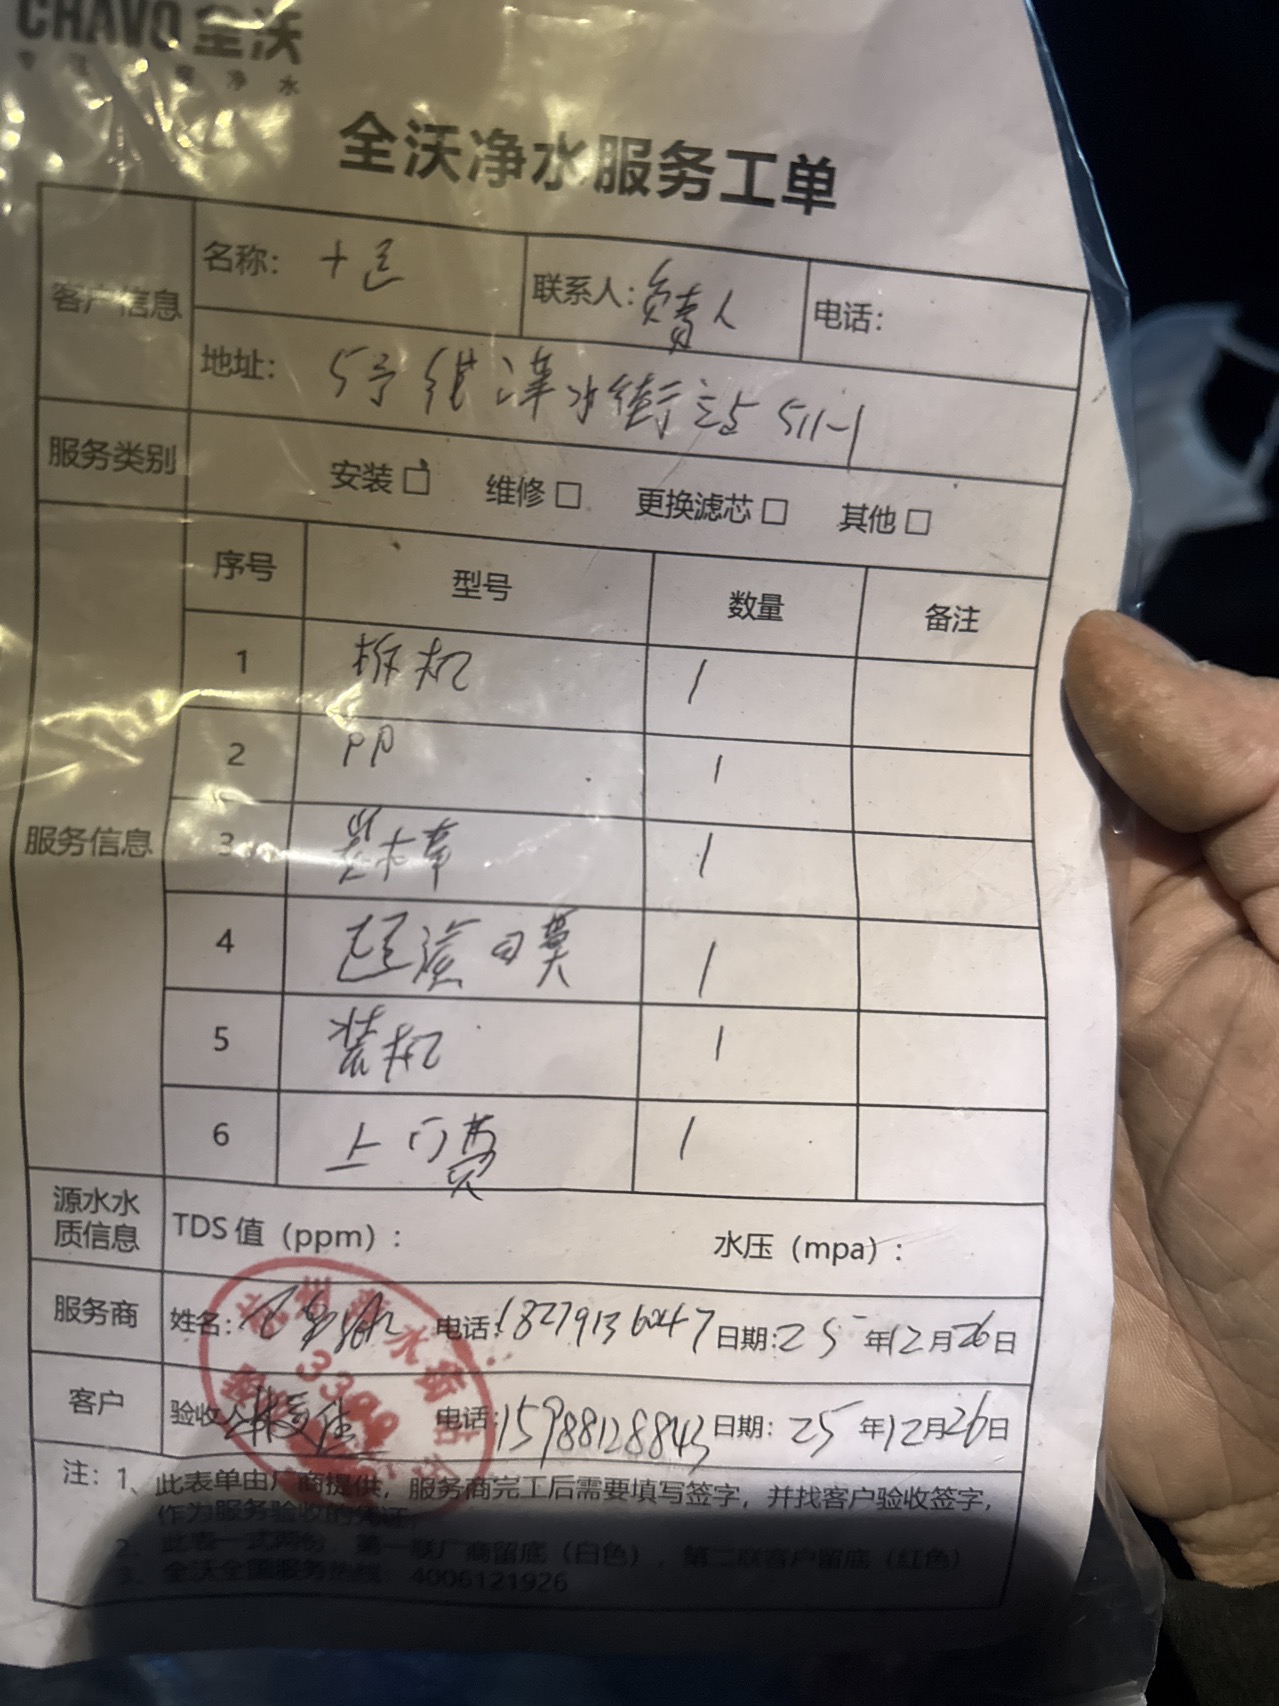 CHAVO 全沃
净水
全沃净水服务工单
客户信息
名称： 十足
联系人： 负责人
电话：
地址： 5号线 水街站 511-1
服务类别
安装□ 维修□ 更换滤芯□ 其他□
服务信息
序号 型号 数量 备注
1 拆机 1
2 PP 1
3 1
4 超滤膜 1
5 装机 1
6 上门费 1
源水水质信息
TDS 值（ppm）： 水压（mpa）：
服务商
姓名： 电话：18279136047 日期：25年12月26日
客户
验收人 电话：15988128843 日期：25年12月26日
注：1、此表单由厂商提供，服务商完工后需要填写签字，并找客户验收签字，
作为服务验收的凭证。
2、此表一式两份，第一联厂商留底（白色），第二联客户留底（红色）
3、全沃全国服务热线：4006121926